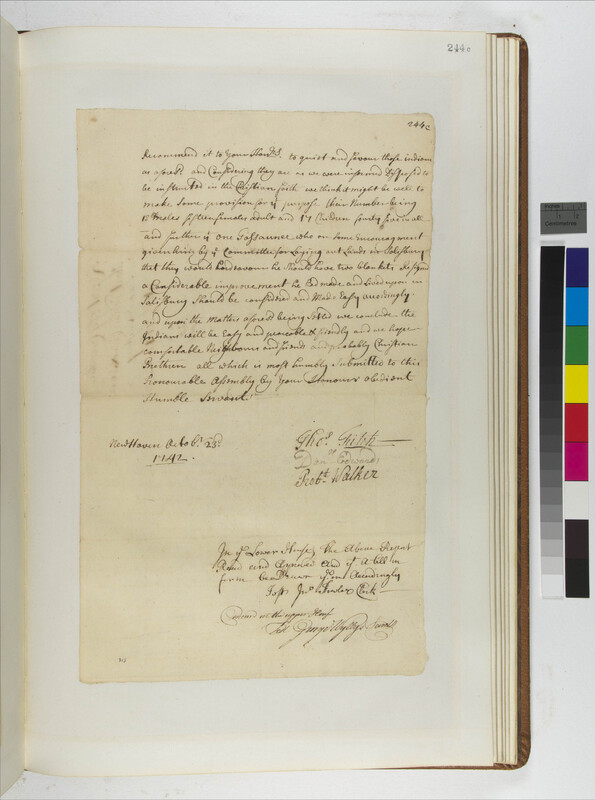 244c
244c
Recommend it to Your Honrs. to quiet and favour those indians
as aforesd. and Considering they are as we were informd Disposed to
be instructed in the Christian faith we think it might be well to
make Some provision for yt purpose their Number being
18 Males fifteen females adult and 17 Children fourty five in all
and further yt one Tassaunee who on some encouragment
given him by ye Committee for Laying out Lands in Salisbury
that they would endeavour he Should have two blankets Resignd
a Considerable improvement he had made and Lived upon in
Salisbury Should be considered and Made Easy accordingly
and upon the Matters aforesd being Setled we conclude the
Indians will be Easy and peaceable & friendly and we hope
comfortable Neighbours and friends and probably Christian
Brethren all which is most humbly Submitted to this
Honourable Assembly by Your Honours obedient
Humble Servants
New Haven Octobr. 23d.
1742.
Thos. Fitch
Danll. Edwards
Robt. Walker
In ye Lower House, the Above Report
Read and Approved And yt A bill in
form be drawn Accordingly
Test Jno. Fowler Clerk
in the upper House
Test George Wyllys Secretr